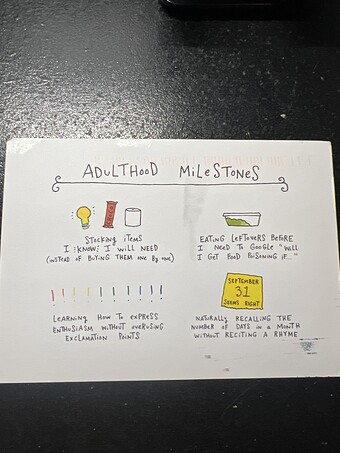 ADULTHOOD MILESTONES
STOCKING ITEMS
I *KNOW* I WILL NEED
(INSTEAD OF BUYING THEM ONE BY ONE)
EATING LEFTOVERS BEFORE
I NEED TO GOOGLE "WILL
I GET FOOD POISONING IF..."
! ! ! ! ! ! ! ! ! !
LEARNING HOW TO EXPRESS
ENTHUSIASM WITHOUT OVERUSING
EXCLAMATION POINTS
SEPTEMBER
31
SEEMS RIGHT
NATURALLY RECALLING THE
NUMBER OF DAYS IN A MONTH
WITHOUT RECITING A RHYME